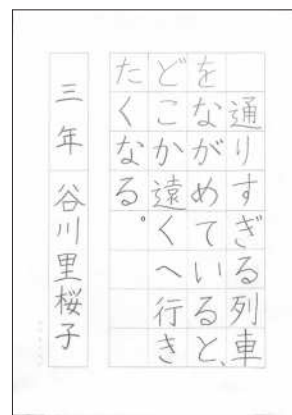 通りすぎる列車
をながめていると、
どこか遠くへ行き
たくなる。
三年　谷川里桜子